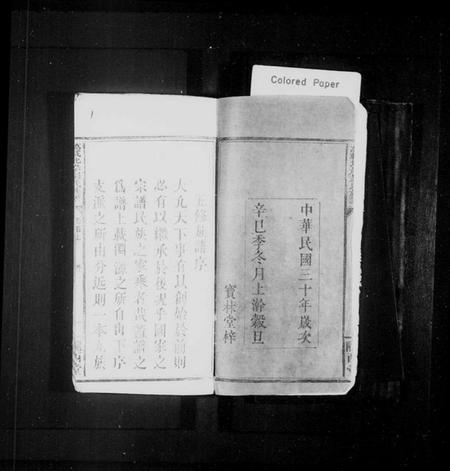 Colored Paper
中華民國三十年歲次
辛巳季冬月上澣穀旦
寶林堂梓
五修族譜序
大凡天下事有以創始於前則
必有以繼承於後況乎國家之
宗譜民族之家乘者哉蓋譜之
為譜上載淵源之所自出下序
支派之所由分近則一本九族